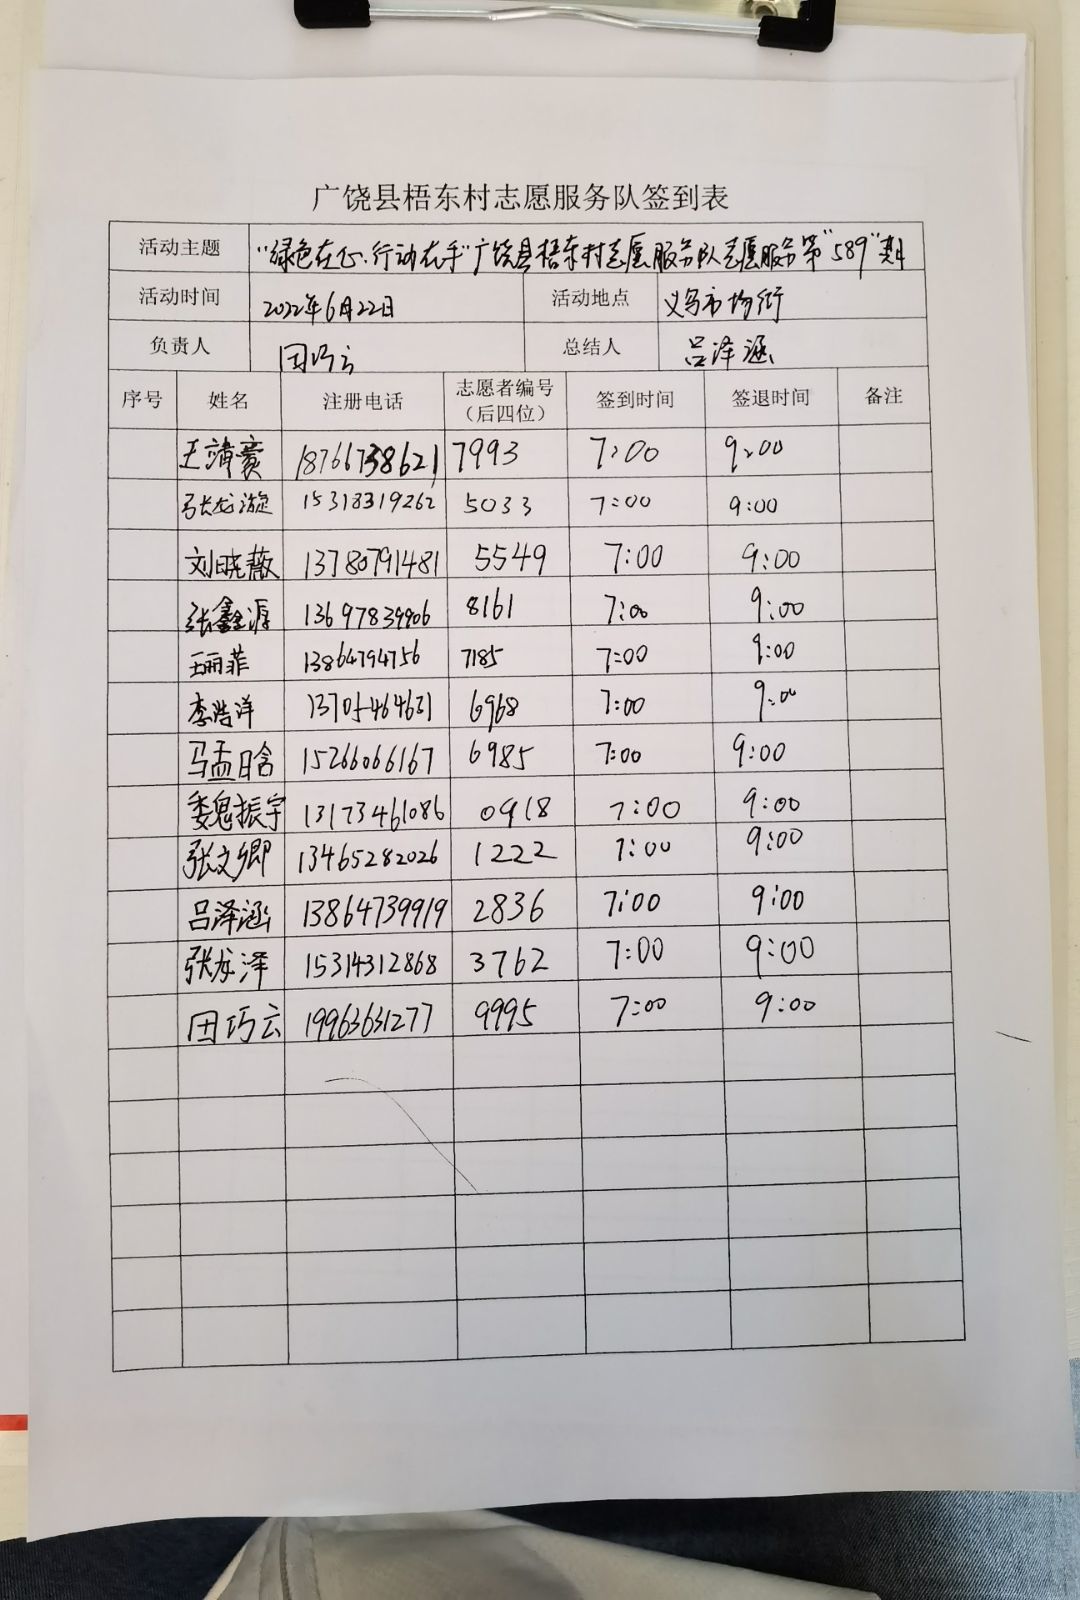 广饶县梧东村志愿服务队签到表
活动主题 "绿色在心·行动在手"广饶县梧东村志愿服务队志愿服务第"589"期
活动时间 2022年6月22日 活动地点 义乌市场街
负责人 田巧云 总结人 吕泽涵
序号 姓名 注册电话 志愿者编号（后四位） 签到时间 签退时间 备注
王靖赛 18766738621 7993 7:00 9:00
张龙漩 15318319262 5033 7:00 9:00
刘晓薇 13780791481 5549 7:00 9:00
张鑫源 13697839906 8161 7:00 9:00
王丽菲 13864794756 7185 7:00 9:00
李浩洋 13705464631 6968 7:00 9:00
马孟晗 15266066167 6985 7:00 9:00
魏振宇 13173461086 0918 7:00 9:00
张文卿 13465282026 1222 7:00 9:00
吕泽涵 13864739919 2836 7:00 9:00
张龙泽 15314312868 3762 7:00 9:00
田巧云 19963631277 9995 7:00 9:00